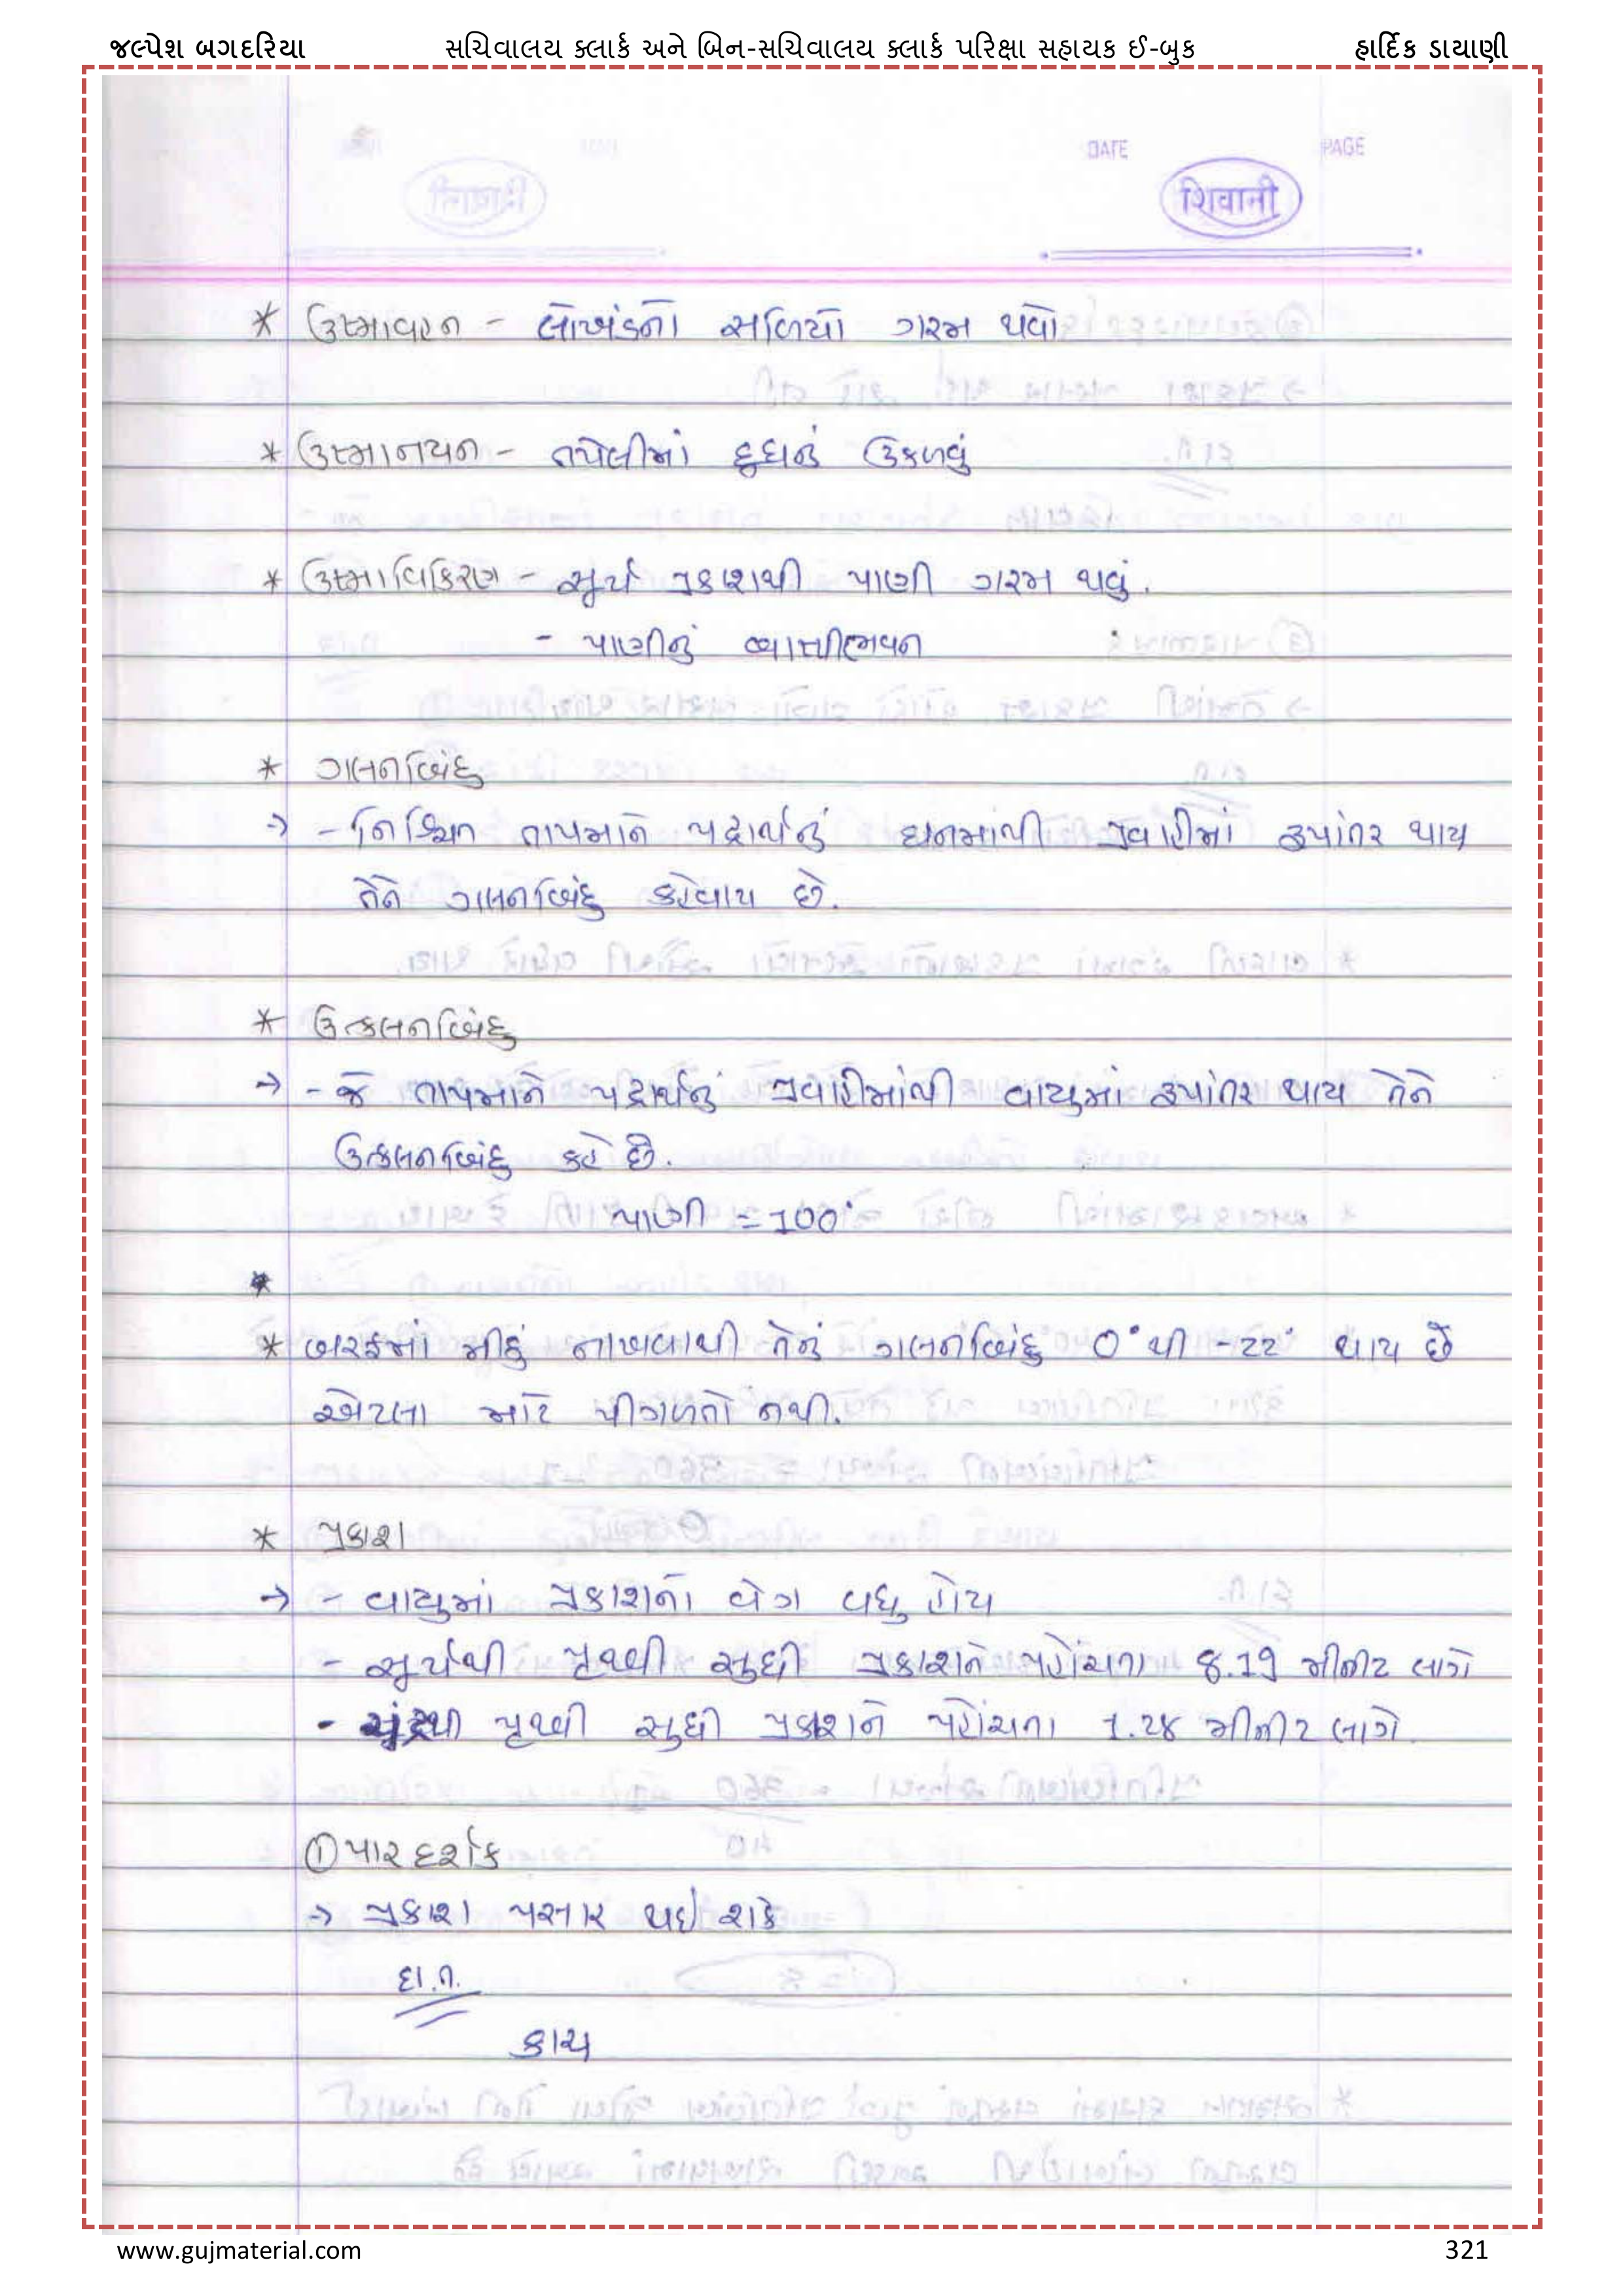 જલ્પેશ બગદરિયા સચિવાલય ક્લાર્ક અને બિન-સચિવાલય ક્લાર્ક પરિક્ષા સહાયક ઈ-બુક હાર્દિક ડાયાણી
DATE PAGE
शिवानी
* ઉષ્માવહન - લોખંડનો સળિયો ગરમ થવો
* ઉષ્માનયન - તપેલીમાં દૂધનું ઉકળવું
* ઉષ્માવિકિરણ - સૂર્ય પ્રકાશથી પાણી ગરમ થવું.
- પાણીનું
* ગલનબિંદુ
→ - નિશ્ચિત તાપમાને પદાર્થનું ઘનમાંથી પ્રવાહીમાં રૂપાંતર થાય
તેને ગલનબિંદુ કહેવાય છે.
* ઉત્કલનબિંદુ
→ - જે તાપમાને પદાર્થનું પ્રવાહીમાંથી વાયુમાં રૂપાંતર થાય તેને
ઉત્કલનબિંદુ કહે છે.
પાણી = 100°
*
* બરફમાં મીઠું નાખવાથી તેનું ગલનબિંદુ 0° થી -22° થાય છે
એટલા માટે પીગળતો નથી.
* પ્રકાશ
→ - વાયુમાં પ્રકાશનો વેગ વધુ હોય
- સૂર્યથી પૃથ્વી સુધી પ્રકાશને પહોંચતા 8.19 મીનીટ લાગે
- ચંદ્રથી પૃથ્વી સુધી પ્રકાશને પહોંચતા 1.28 મીનીટ લાગે.
① પારદર્શક
→ પ્રકાશ પસાર થઇ શકે
દા.ત.
કાચ
www.gujmaterial.com 321